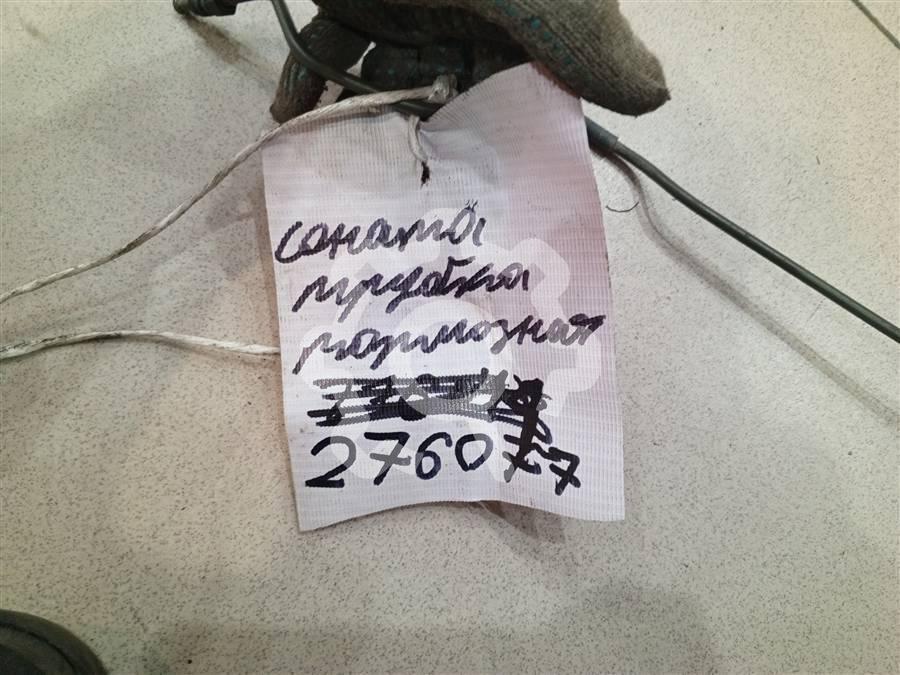 соната
трубка
тормозная
276077